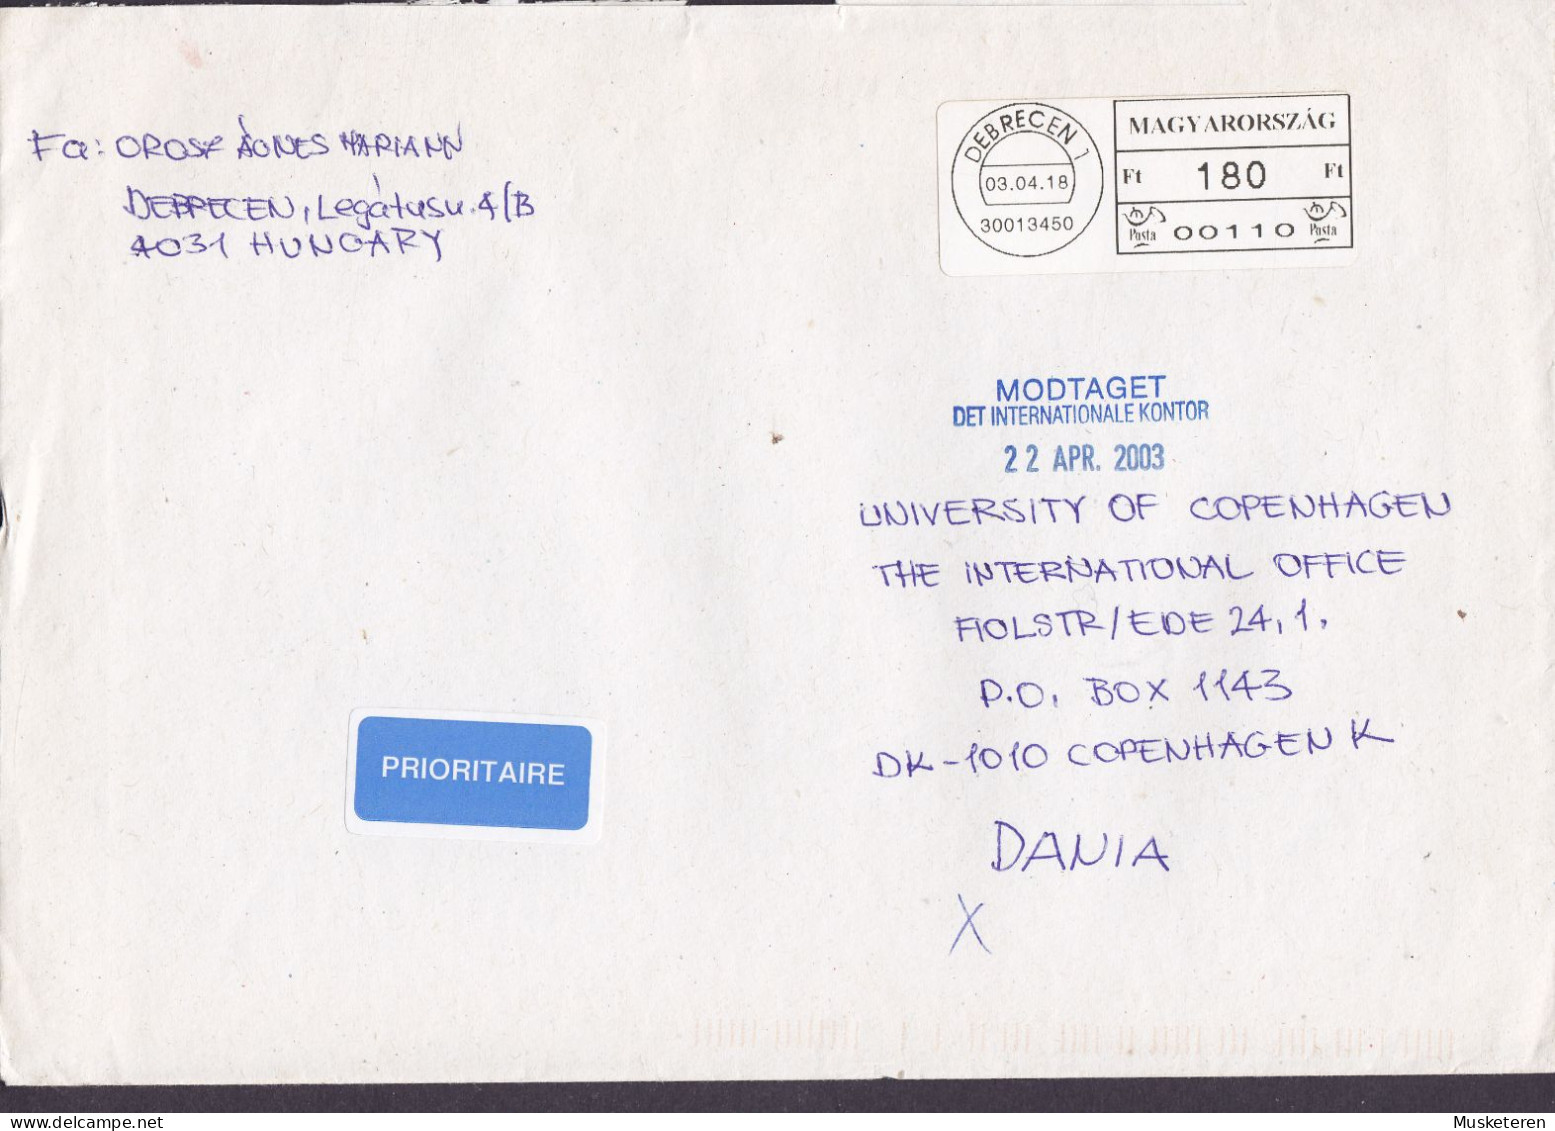 Fa: OROSZ ÁGNES MARIANN
DEBRECEN, Legátusu. 4/B
4031 HUNGARY
DEBRECEN 1
03.04.18
30013450
MAGYARORSZÁG
Ft 180 Ft
Posta 00110 Posta
MODTAGET
DET INTERNATIONALE KONTOR
22 APR. 2003
UNIVERSITY OF COPENHAGEN
THE INTERNATIONAL OFFICE
FIOLSTR/EDE 24, 1.
P.O. BOX 1143
DK-1010 COPENHAGEN K
DANIA
X
PRIORITAIRE
Musketeren